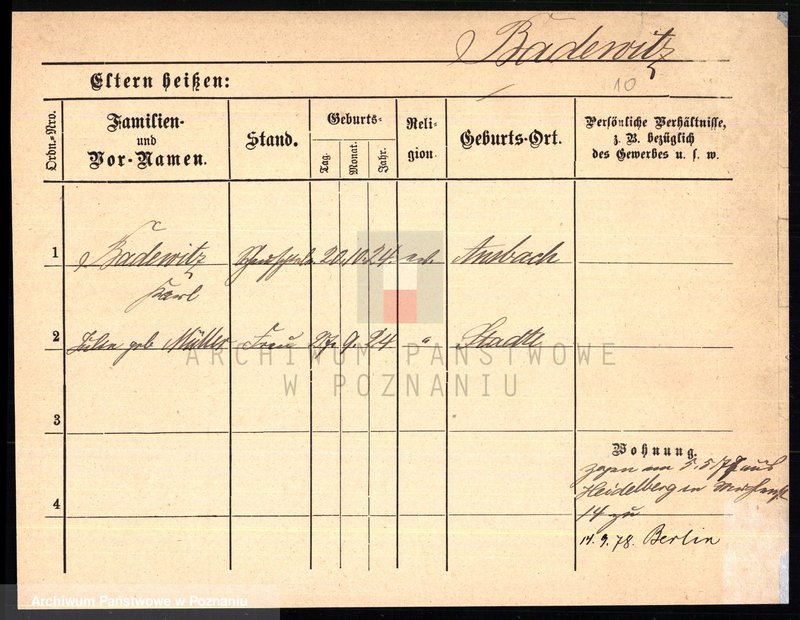 Badewitz
10
Eltern heißen:
Ordn.-Nro.
Familien-
und
Vor-Namen.
Stand.
Geburts-
Tag.
Monat.
Jahr.
Reli-
gion.
Geburts-Ort.
Persönliche Verhältnisse,
z. B. bezüglich
des Gewerbes u. s. w.
1 Badewitz 20. 10. 24. Ansbach
Karl
2 geb Müller Frau 27. 9. 24 " Stadte
ARCHIWUM PAŃSTWOWE
W POZNANIU
3
Wohnung.
zogen am 5.5.78 aus
Heidelberg in
4
14 zu
14. 9. 78. Berlin
Archiwum Państwowe w Poznaniu